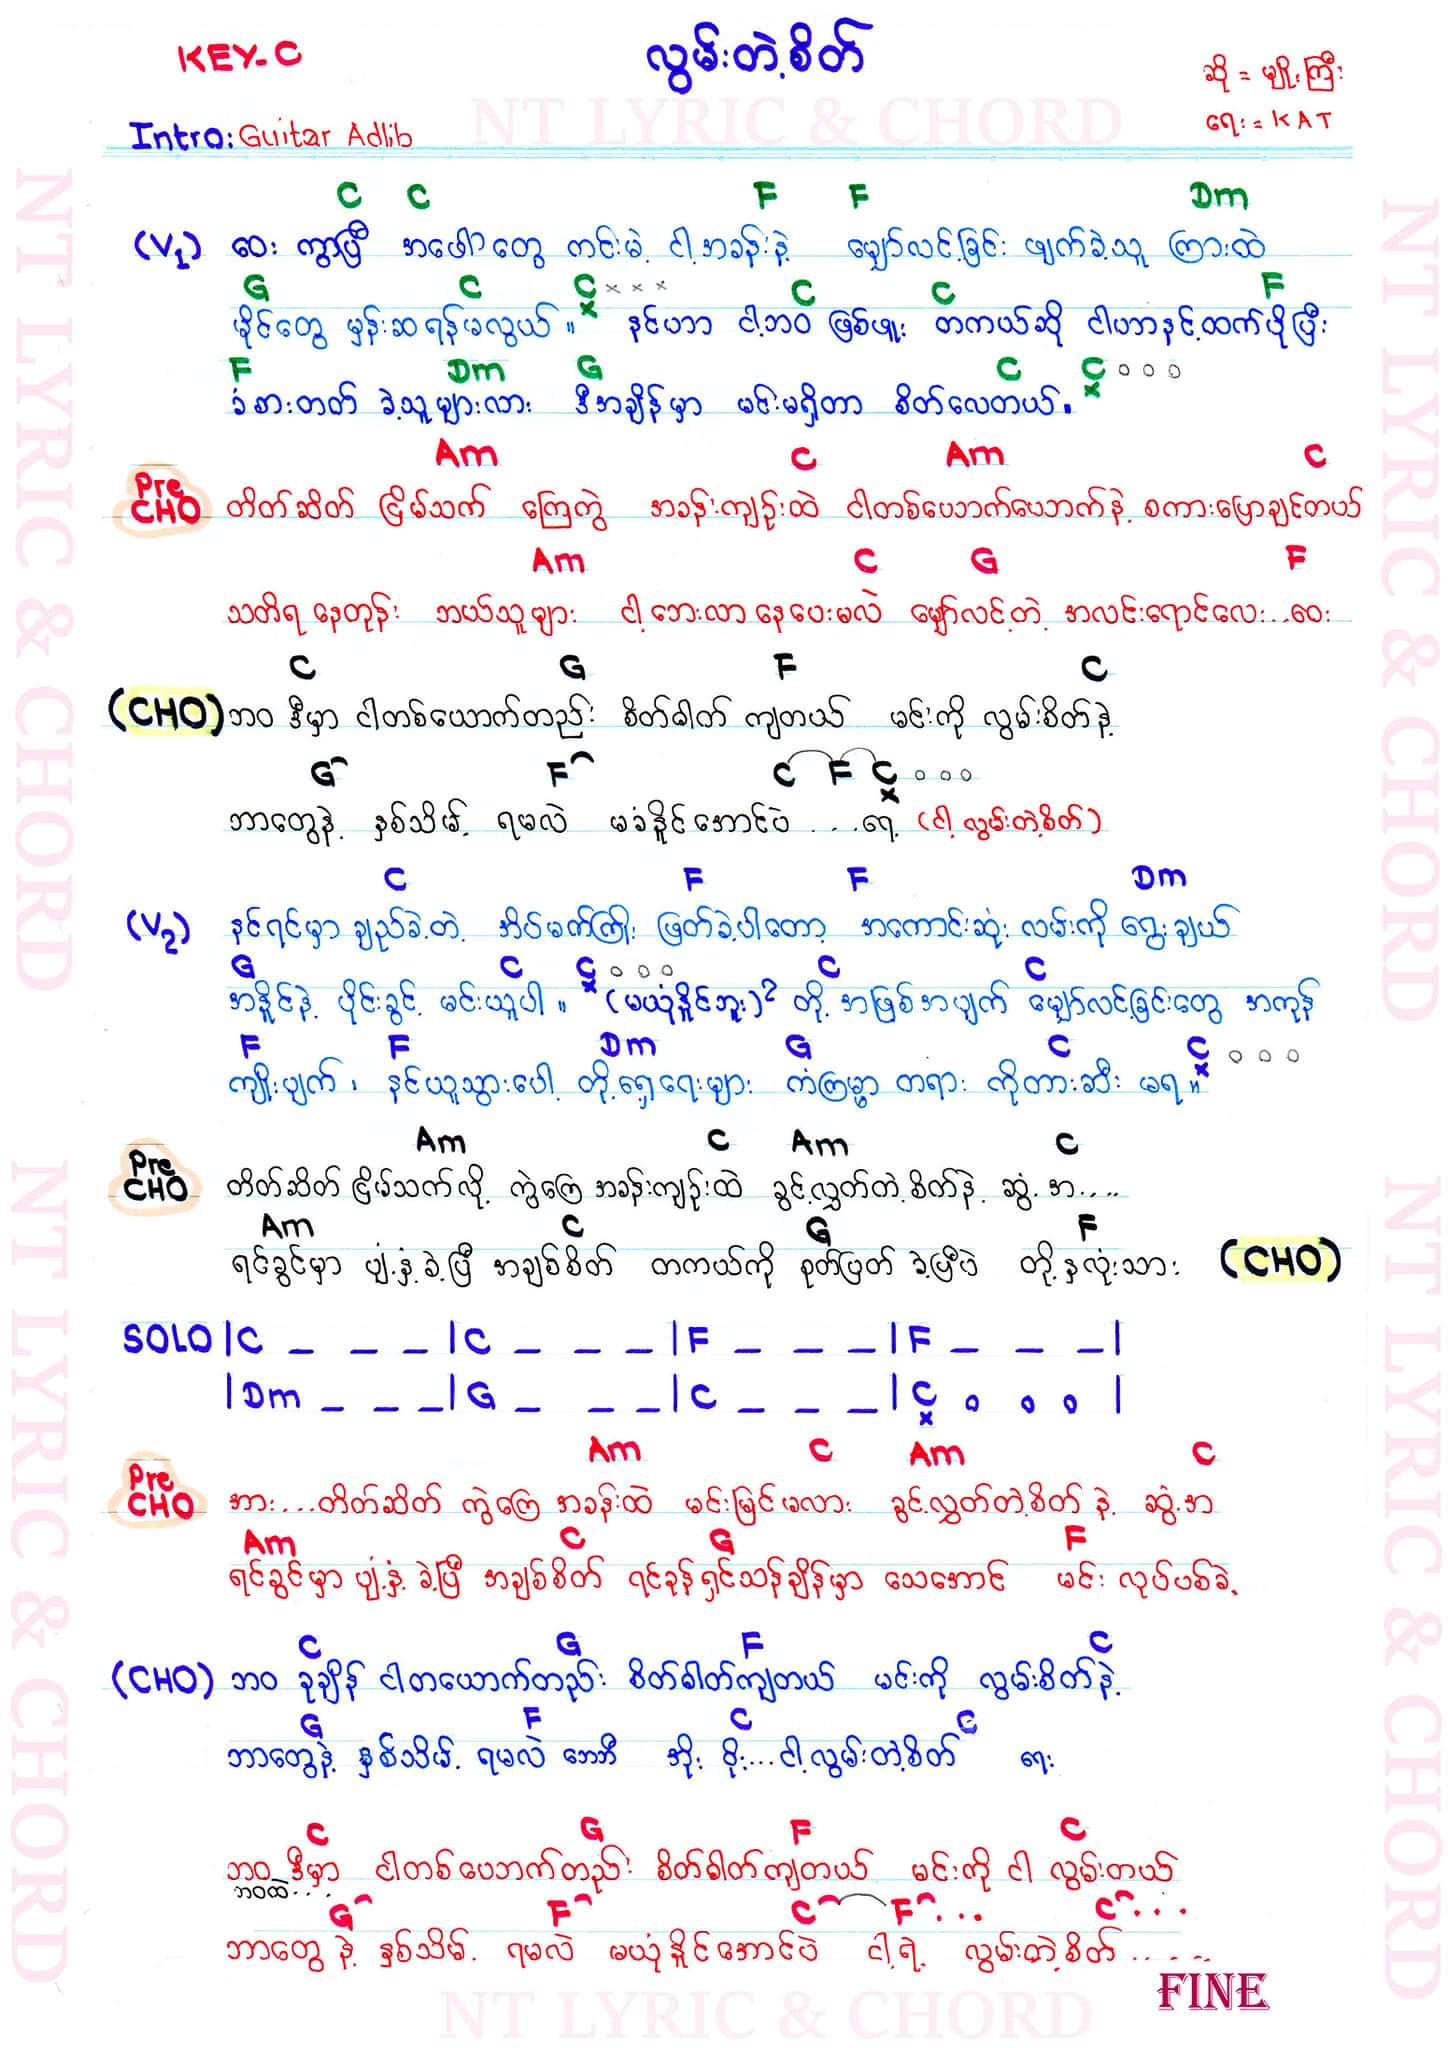 KEY-C
လွမ်းတဲ့စိတ်
ဆို = မျိုးကြီး
ရေး = KAT
Intro: Guitar Adlib
NT LYRIC & CHORD
C C F F Dm
(V1) ဝေး ကွာပြီ အဖော်တွေ ကင်းမဲ့ ငါ့အခန်းနဲ့ မျှော်လင့်ခြင်း ဖျက်ခဲ့သူ ကြားထဲ
G C C x x x C C F
မှိုင်တွေ မှန်းဆ ရန်မလွယ် ။ နင်ဟာ ငါ့ဘဝ ဖြစ်ဖူး တကယ်ဆို ငါဟာနင့်ထက်ပိုပြီး
F Dm G C C o o o
ခံစားတတ် ခဲ့သူများလား ဒီအချိန်မှာ မင်းမရှိတာ စိတ်လေတယ်.
Am C Am C
Pre CHO တိတ်ဆိတ် ငြိမ်သက် ကြေကွဲ အခန်းကျဉ်းထဲ ငါတစ်ယောက်ယောက်နဲ့ စကားပြောချင်တယ်
Am C G F
သတိရ နေတုန်း ဘယ်သူများ ငါ့ဘေးလာနေပေးမလဲ မျှော်လင့်တဲ့ အလင်းရောင်လေး...ဝေး
C G F C
(CHO) ဘဝ ဒီမှာ ငါတစ်ယောက်တည်း စိတ်ဓါတ် ကျတယ် မင်းကို လွမ်းစိတ်နဲ့
G F C F C o o o
ဘာတွေနဲ့ နှစ်သိမ့် ရမလဲ မခံနိုင်အောင်ပဲ ....ရေ့ (ငါ့လွမ်းတဲ့စိတ်)
C F F Dm
(V2) နင်ရင်မှာ ချည်ခဲ့တဲ့ အိပ်မက်ကြိုး ဖြတ်ခဲ့ပါတော့ အကောင်းဆုံး လမ်းကို ရွေးချယ်
G C C o o o C C
အနိုင်နဲ့ ပိုင်းခွင့် မင်းယူပါ ။ (မယုံနိုင်ဘူး)2 တို့အဖြစ်အပျက် မျှော်လင့်ခြင်းတွေ အကုန်
F F Dm G C C o o o
ကျိုးပျက် ၊ နင်ယူသွားပေါ့ တို့ရှေ့ရေးများ ကံကြမ္မာ တရား ကိုတားဆီး မရ ။
Am C Am C
Pre CHO တိတ်ဆိတ် ငြိမ်သက်လို့ ကွဲကြေ အခန်းကျဉ်းထဲ ခွင့်လွှတ်တဲ့စိတ်နဲ့ ဆွံ့ အ....
Am C G F
ရင်ခွင်မှာ ပျံ့နှံ့ခဲ့ပြီ အချစ်စိတ် တကယ်ကို စုတ်ပြတ် ခဲ့ပြီပဲ တို့နှလုံးသား (CHO)
SOLO |C _ _ _ |C _ _ _ |F _ _ _ |F _ _ _ |
|Dm _ _ _ |G _ _ _ |C _ _ _ |C o o o |
Am C Am C
Pre CHO အား....တိတ်ဆိတ် ကွဲကြေ အခန်းထဲ မင်းမြင်မလား ခွင့်လွှတ်တဲ့စိတ် နဲ့ ဆွံ့အ
Am C G F
ရင်ခွင်မှာ ပျံ့နှံ့ ခဲ့ပြီ အချစ်စိတ် ရင်ခုန်ရှင်သန်ချိန်မှာ သေအောင် မင်း လုပ်ပစ်ခဲ့
C G F C
(CHO) ဘဝ ခုချိန် ငါတယောက်တည်း စိတ်ဓါတ်ကျတယ် မင်းကို လွမ်းစိတ်နဲ့
G F C C
ဘာတွေနဲ့ နှစ်သိမ့် ရမလဲ ဘေဘီ အိုး ဗိုး...ငါ့လွမ်းတဲ့စိတ် ရေး
C G F C
ဘဝ ဒီမှာ ငါတစ်ယောက်တည်း စိတ်ဓါတ်ကျတယ် မင်းကို ငါ လွမ်းတယ်
ဘဝထဲ...
G F C F... C...
ဘာတွေ နဲ့ နှစ်သိမ့် ရမလဲ မယုံနိုင်အောင်ပဲ ငါ့ရဲ့ လွမ်းတဲ့စိတ် ......
FINE
NT LYRIC & CHORD
NT LYRIC & CHORD
NT LYRIC & CHORD
NT LYRIC & CHORD
NT LYRIC & CHORD